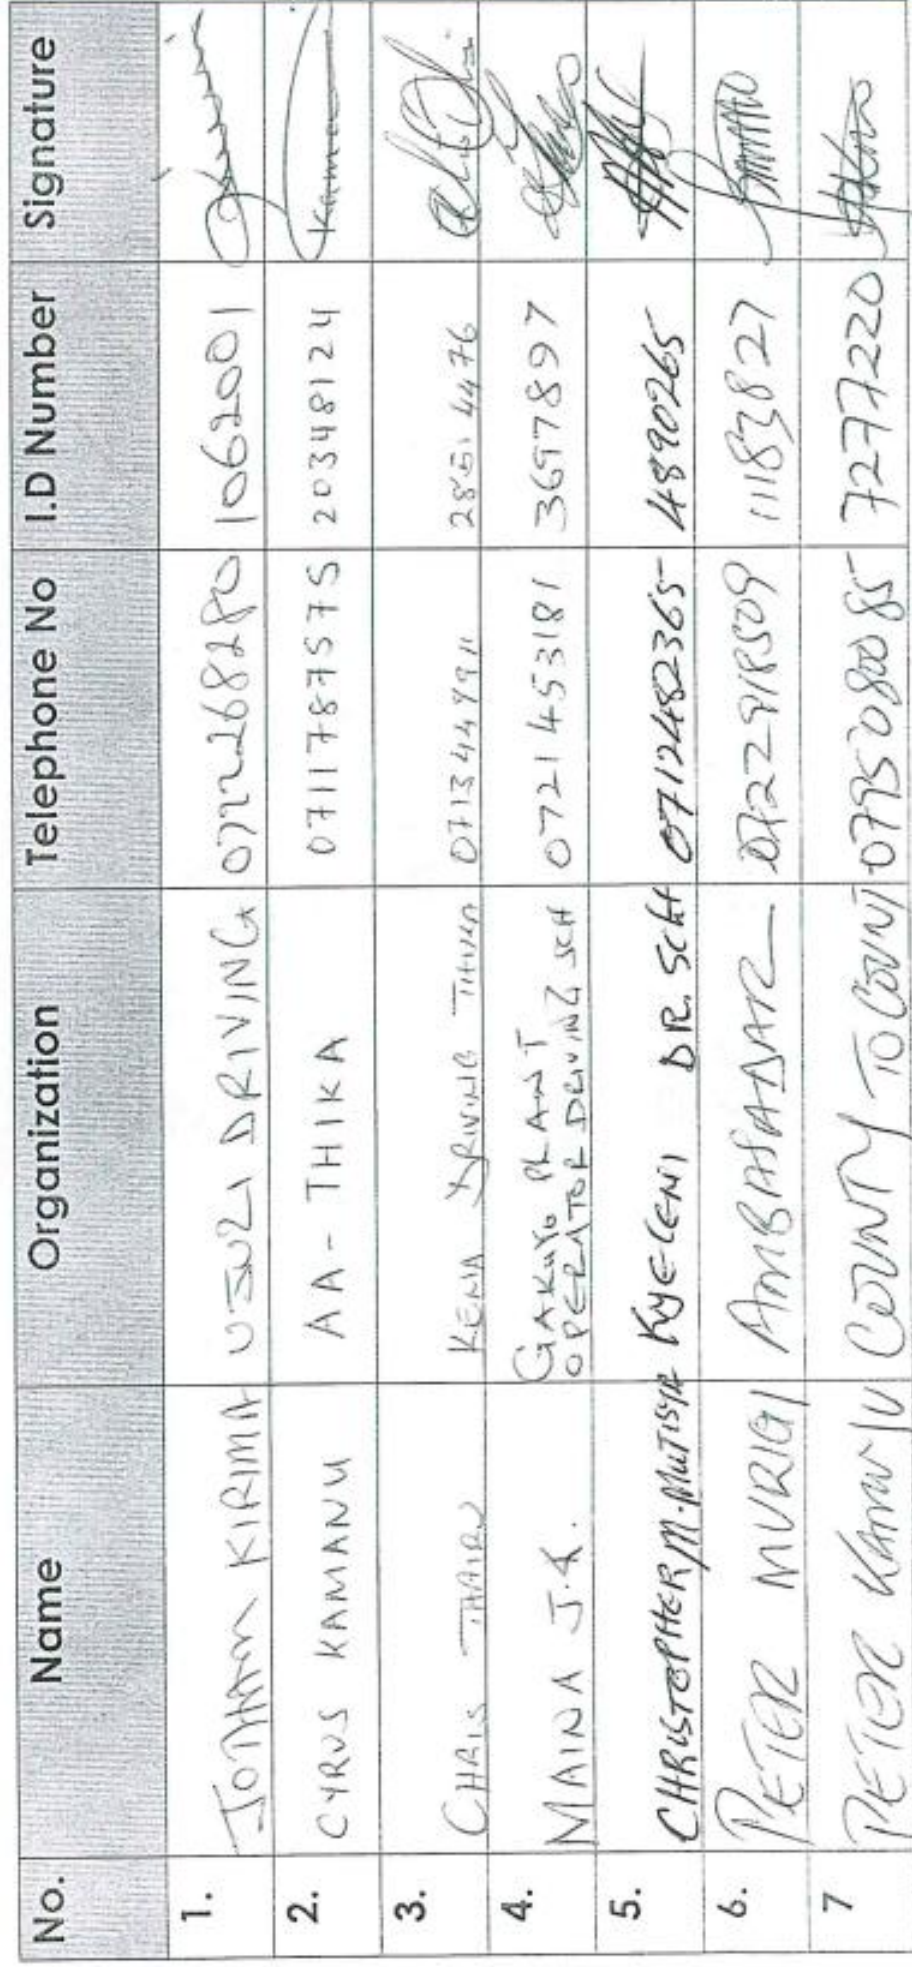 No. Name Organization Telephone No I.D Number Signature
1. JOTHAM KIRIMA UJUZI DRIVING 0722268280 1062001
2. CYRUS KAMANU AA - THIKA 0711787575 20348124 Kamau
3. CHRIS THAIRU KENIA DRIVING THIKA 0713449911 28514476
4. MAINA J.K. GAKUYO PLANT
OPERATOR DRIVING SCH 0721453181 3697897
5. CHRISTOPHER M. MUTISYA KYECENI DR. SCH 0712482365 4890265
6. PETER MURIGI AMBASADAR 11183827
7 PETER COUNTY TO COUNT 0795080085 7277220